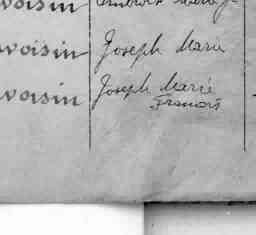 voisin
voisin Joseph Marie
voisin Joseph Marie
Francois